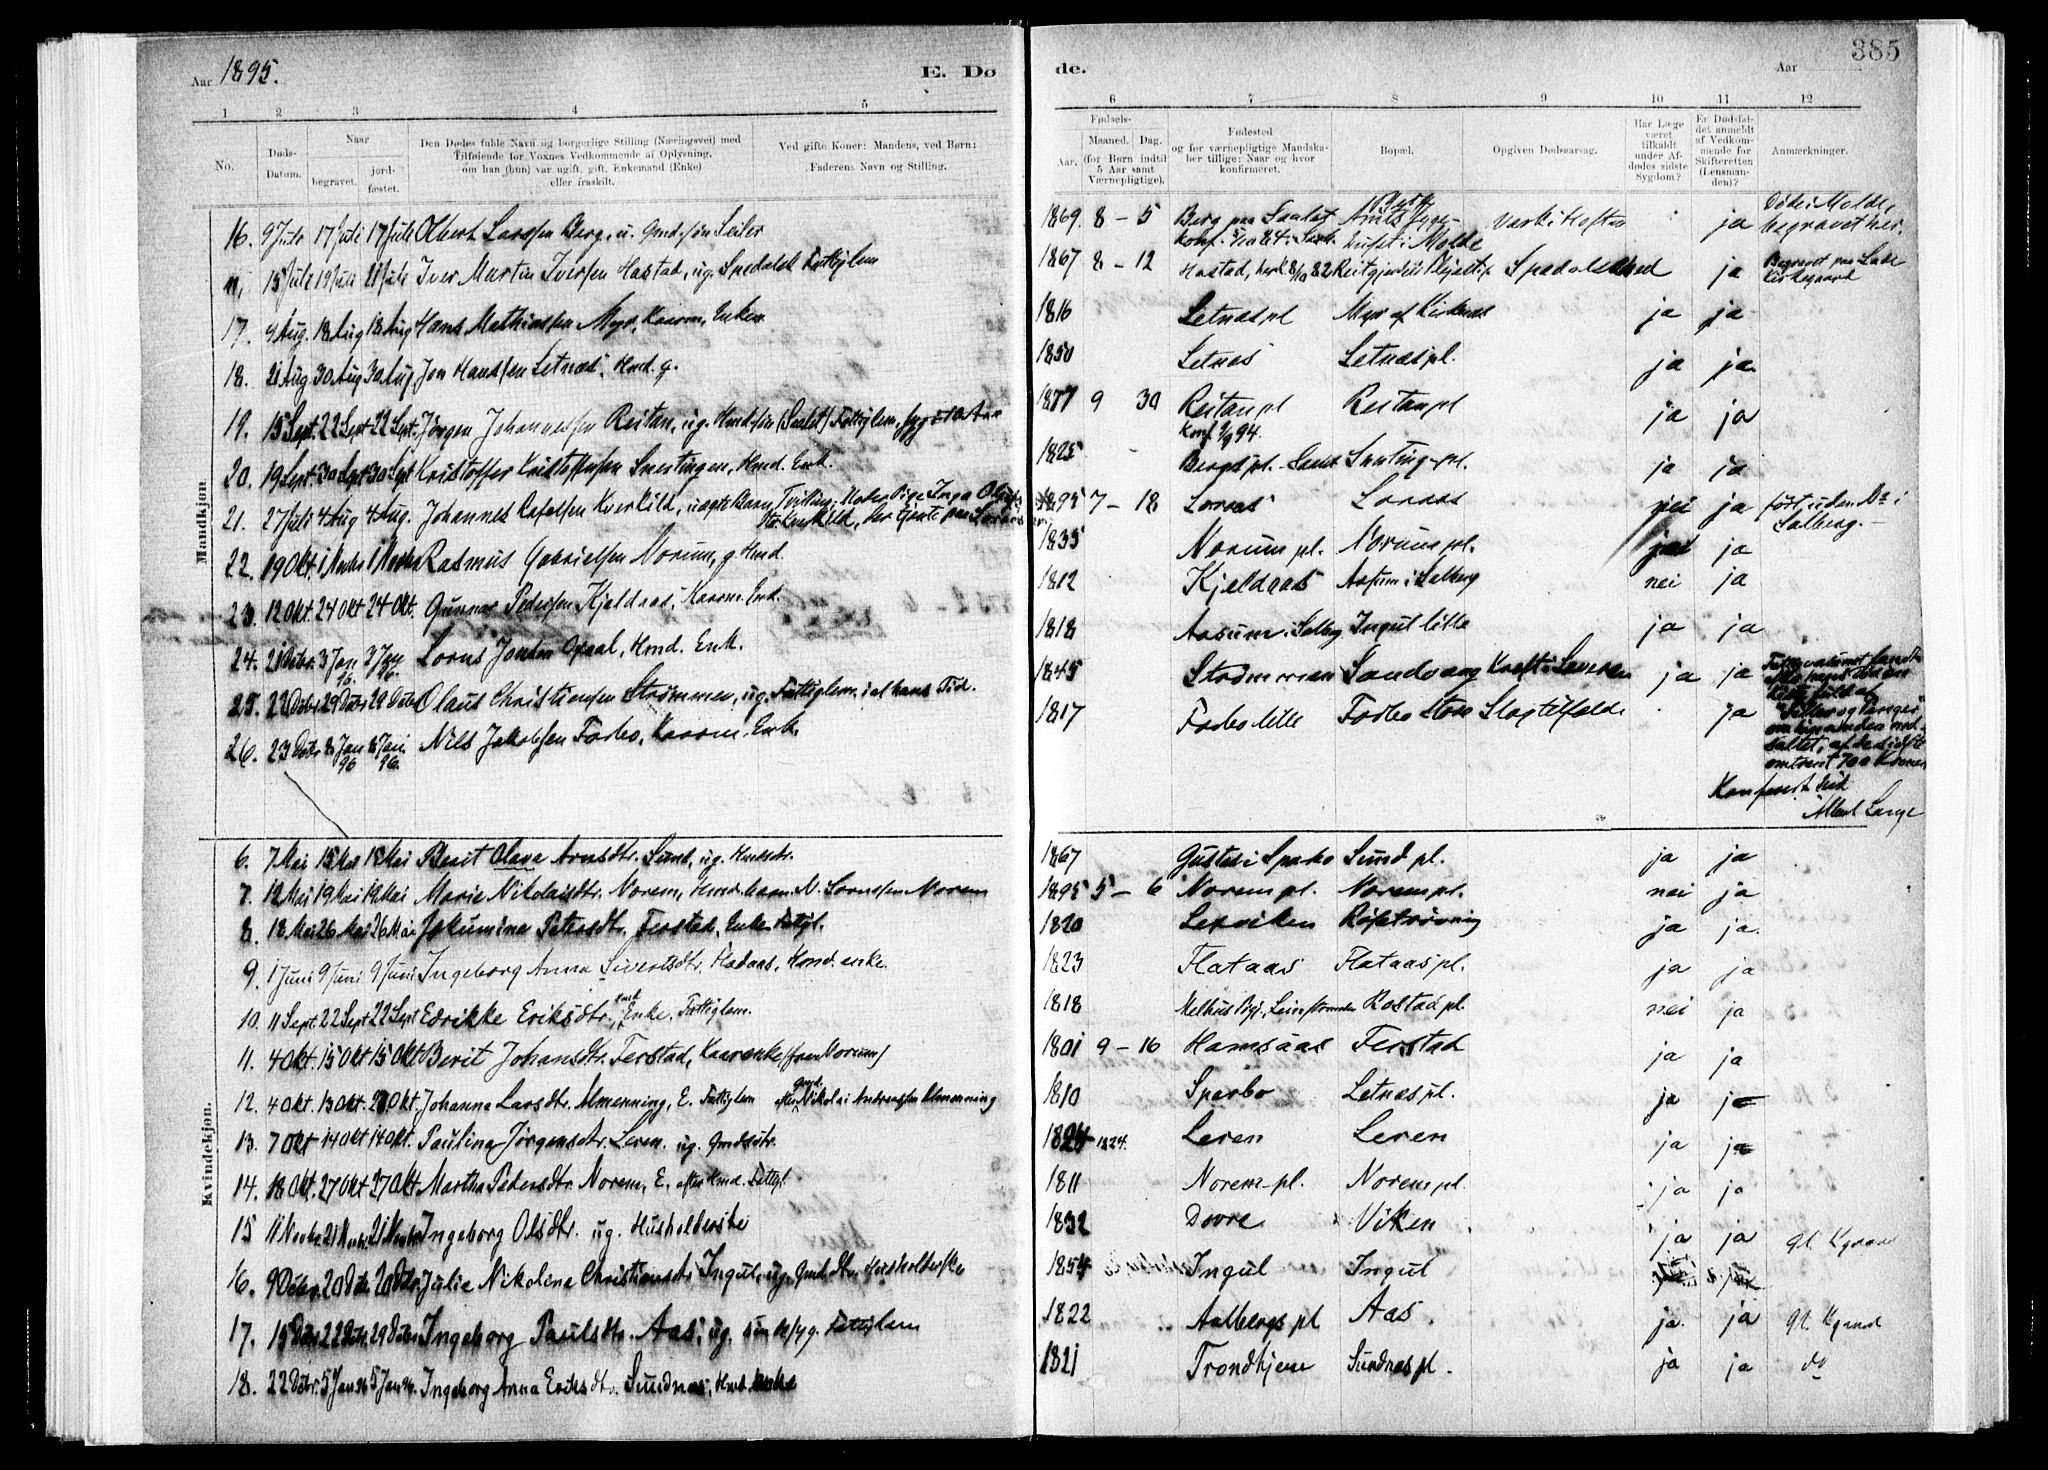 Aar 1895.
E. Dø
de.
Aar
385
1 2 3 4 5
6 7 8 9 10 11 12
No.
Døds-Datum.
Naar
begravet.
jord-fæstet.
Den Dødes fulde Navn og borgerlige Stilling (Næringsvei) med
Tilføiende for Voxnes Vedkommende af Oplysning,
om han (hun) var ugift, gift, Enkemand (Enke)
eller fraskilt.
Ved gifte Koner: Mandens, ved Børn:
Faderens Navn og Stilling.
Fødsels-
Aar.
Maaned. Dag.
(for Børn indtil
5 Aar samt
Værnepligtige).
Fødested
og for værnepligtige Mandska-
ber tillige: Naar og hvor
konfirmeret.
Bopæl.
Opgiven Dødsaarsag.
Har Læge
været
tilkaldt
under Af-
dødes sidste
Sygdom?
Er Dødsfal-
det anmeldt
af Vedkom-
mende for
Skifteretten
(Lensman-
den)?
Anmærkninger.
Mandkjøn
16. 9 Juli 17 Juli 17 Juli Olbert Larssen Berg, u. Gmd.søn Seiler 1869. 8 - 5 Berg paa Saalat ja Døde i Molde, begravet her.
15 Juli 19 Juli 21 Juli Iver Martin Iversen Hastad, ug. Spedalsk Fattiglem 1867 8 - 12 Hastad, Reitgjerdet Plejestif Spedalskhed ja Begravet paa Lade Kirkegaard
17. 9 Aug. 18 Aug 18 Aug Hans Mathiassen Myr, Kaarm, Enkem 1816 Letnæs pl Myr af Kirknes ja ja
18. 21 Aug 30 Aug 30 Aug Jon Hanssen Letnæs, Hmd. g. 1850 Letnæs Letnæs pl. ja ja
19. 15 Sept. 22 Sept 22 Sept. Jørgen Johannessen Reitan, ug. Hmd.søn (Saalet) Fattiglem 1877 9 30 Reitan pl konf. 94. Reitan pl ja ja
20. 19 Sept. 30 Sept 30 Sept Kristoffer Kristoffersen Snertingen, Hmd. Enk. 1825 Bergs pl. ja ja
21. 27 Juli 4 Aug 4 Aug. Johannes Kverkild, uægte Barn, Tvilling. Moder Pige Inga 1895 7 - 18 Loraas Loraas nei ja ført uden No i Salberg.
22. 19 Okt. 1 Novbr 1 Novbr Rasmus Gabrielsen Norum, g Hmd 1835 Norum pl. Norum pl. ja
23. 12 Okt. 24 Okt 24 Okt. Gunnar Pedersen Kjeldaas, Kaarm. Enk. 1812 Kjeldaas Aasum i Salberg nei ja
24. 21 Debr. 3 Jan 96. 3 Jan 96. Lorns Opaal, Hmd. Enk. 1818 Aasum i Salbrg Ingul lille ja ja
25. 22 Debr 29 Debr 29 Debr Olaus Christiansen Strømmen, ug. Fattiglem i al hans Tid. 1845 Strømmen Sandvaag Kræft i Leveren ja ja
26. 23 Debr 8 Jan 96 8 Jan 96. Nils Jakobsen Forbo, Kaarm. Enk. 1817 Forbo lille Forbo store Slagtilfælde ja
omtrent 700 Kroner
Konferert hid
Albert Lange
Kvindekjøn.
6. 7 Mai 15 Mai 15 Mai Berit Olava Arnsdtr. Sund, ug. Hmdsdtr. 1867 Sparbo Sund pl. ja ja
7. 12 Mai 19 Mai 19 Mai Marie Nikolaisdtr. Norem, Hmd.barn N. Lornssen Norem 1895 5 - 6 Norem pl. Norem pl. nei ja
8. 18 Mai 26 Mai 26 Mai Jakumina Petersdtr. Ferstad, Enke Fattigl. 1820 Lexviken ja ja
9. 1 Juni 9 Juni 9 Juni Ingeborg Anna Sivertsdtr. Fladaas, Hmd. enke. 1823 Flataas Flataas pl. ja ja
10. 11 Sept. 22 Sept 22 Sept Edrikke Eriksdtr. Enke. Fattiglem. 1818 Melhus Rostad pl. nei ja
11. 4 Okt. 15 Okt 15 Okt Berit Johansdtr. Ferstad, Kaarenke (fra Norum) 1801 9 - 16 Hamsaas Ferstad ja ja
12. 4 Okt. 13 Okt. 20 Okt. Johanna Larsdtr. Almenning, E. Fattiglem efter Gmd. Nikolai Andreassen Almenning 1810 Sparbo Letnæs pl. ja ja
13. 7 Okt 14 Okt 14 Okt. Paulina Jørgensdtr. Leren. ug. Gmdsdtr. 1824 Leren Leren ja ja
14. 18 Okt. 27 Okt 27 Okt Martha Pedersdtr. Norem, E. efter Hmd. Fattigl. 1811 Norem pl. Norem pl. ja ja
15 11 Novbr. 21 Novbr. 21 Novbr Ingeborg Olsdtr. ug. Husholderske 1832 Dovre Viken ja ja gl. Kgaard
16. 9 Debr. 20 Debr 20 Debr. Julie Nikolina Christiansdtr Ingul, ug. Gmd.dtr. Husholderske 1854 Ingul Ingul
17. 15 Debr 22 Debr. 29 Debr Ingeborg Paulsdtr. Aas, ug. Fattiglem 1822 Aalbergs pl Aas. ja ja gl. Kgaard
18. 22 Debr. 5 Jan 96 5 Jan 96. Ingeborg Anna Eriksdtr. Sundnæs, Hmd. enke 1821 Trondhjem Sundnæs pl. ja ja do